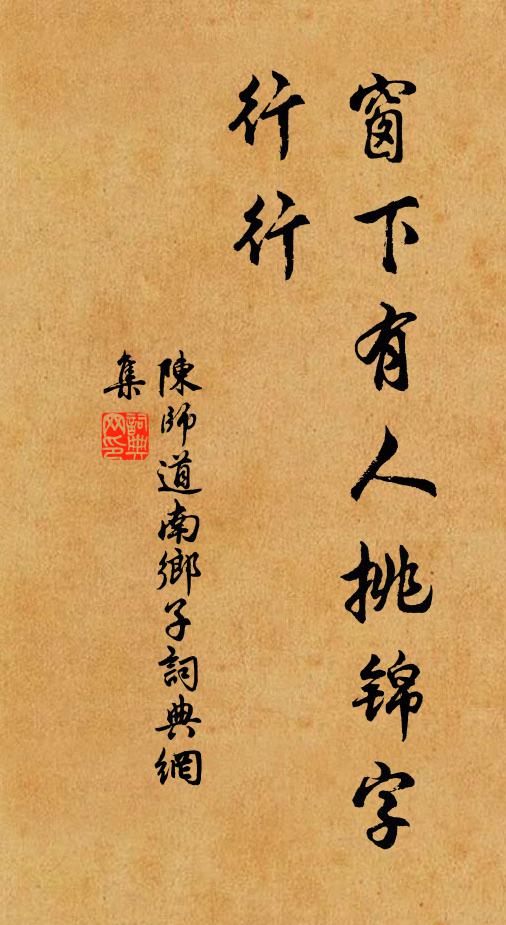 窗下有人挑锦字
行行
陳師道南鄉子詞典網
集
詞典网印